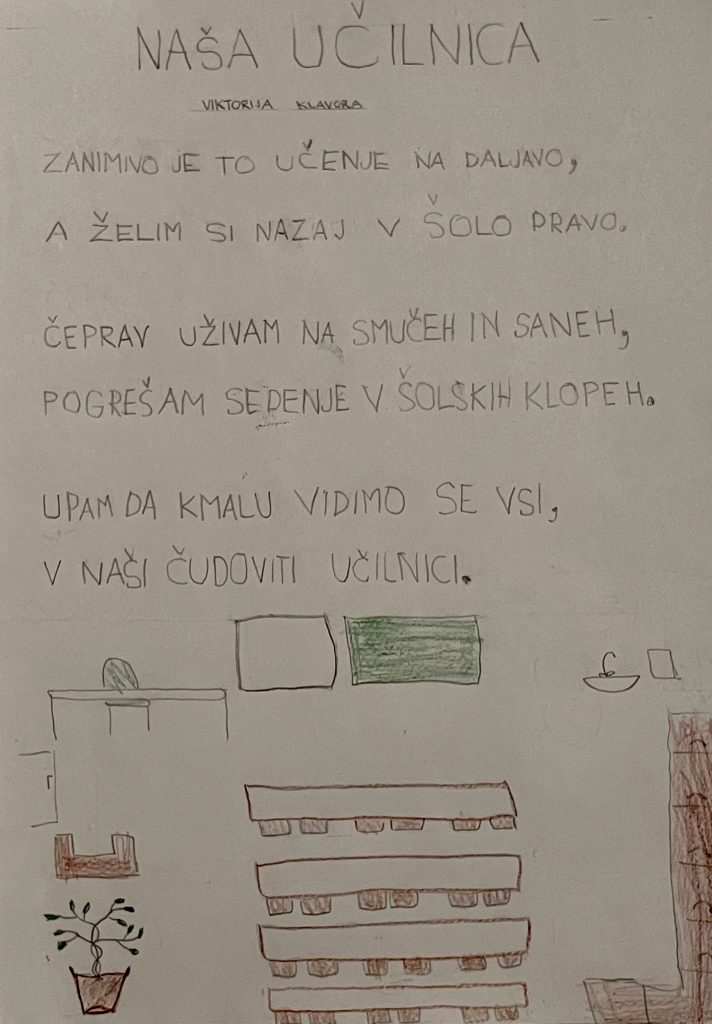 NAŠA UČILNICA
VIKTORIJA KLAVORA
ZANIMIVO JE TO UČENJE NA DALJAVO,
A ŽELIM SI NAZAJ V ŠOLO PRAVO.
ČEPRAV UŽIVAM NA SMUČEH IN SANEH,
POGREŠAM SEDENJE V ŠOLSKIH KLOPEH.
UPAM DA KMALU VIDIMO SE VSI,
V NAŠI ČUDOVITI UČILNICI.